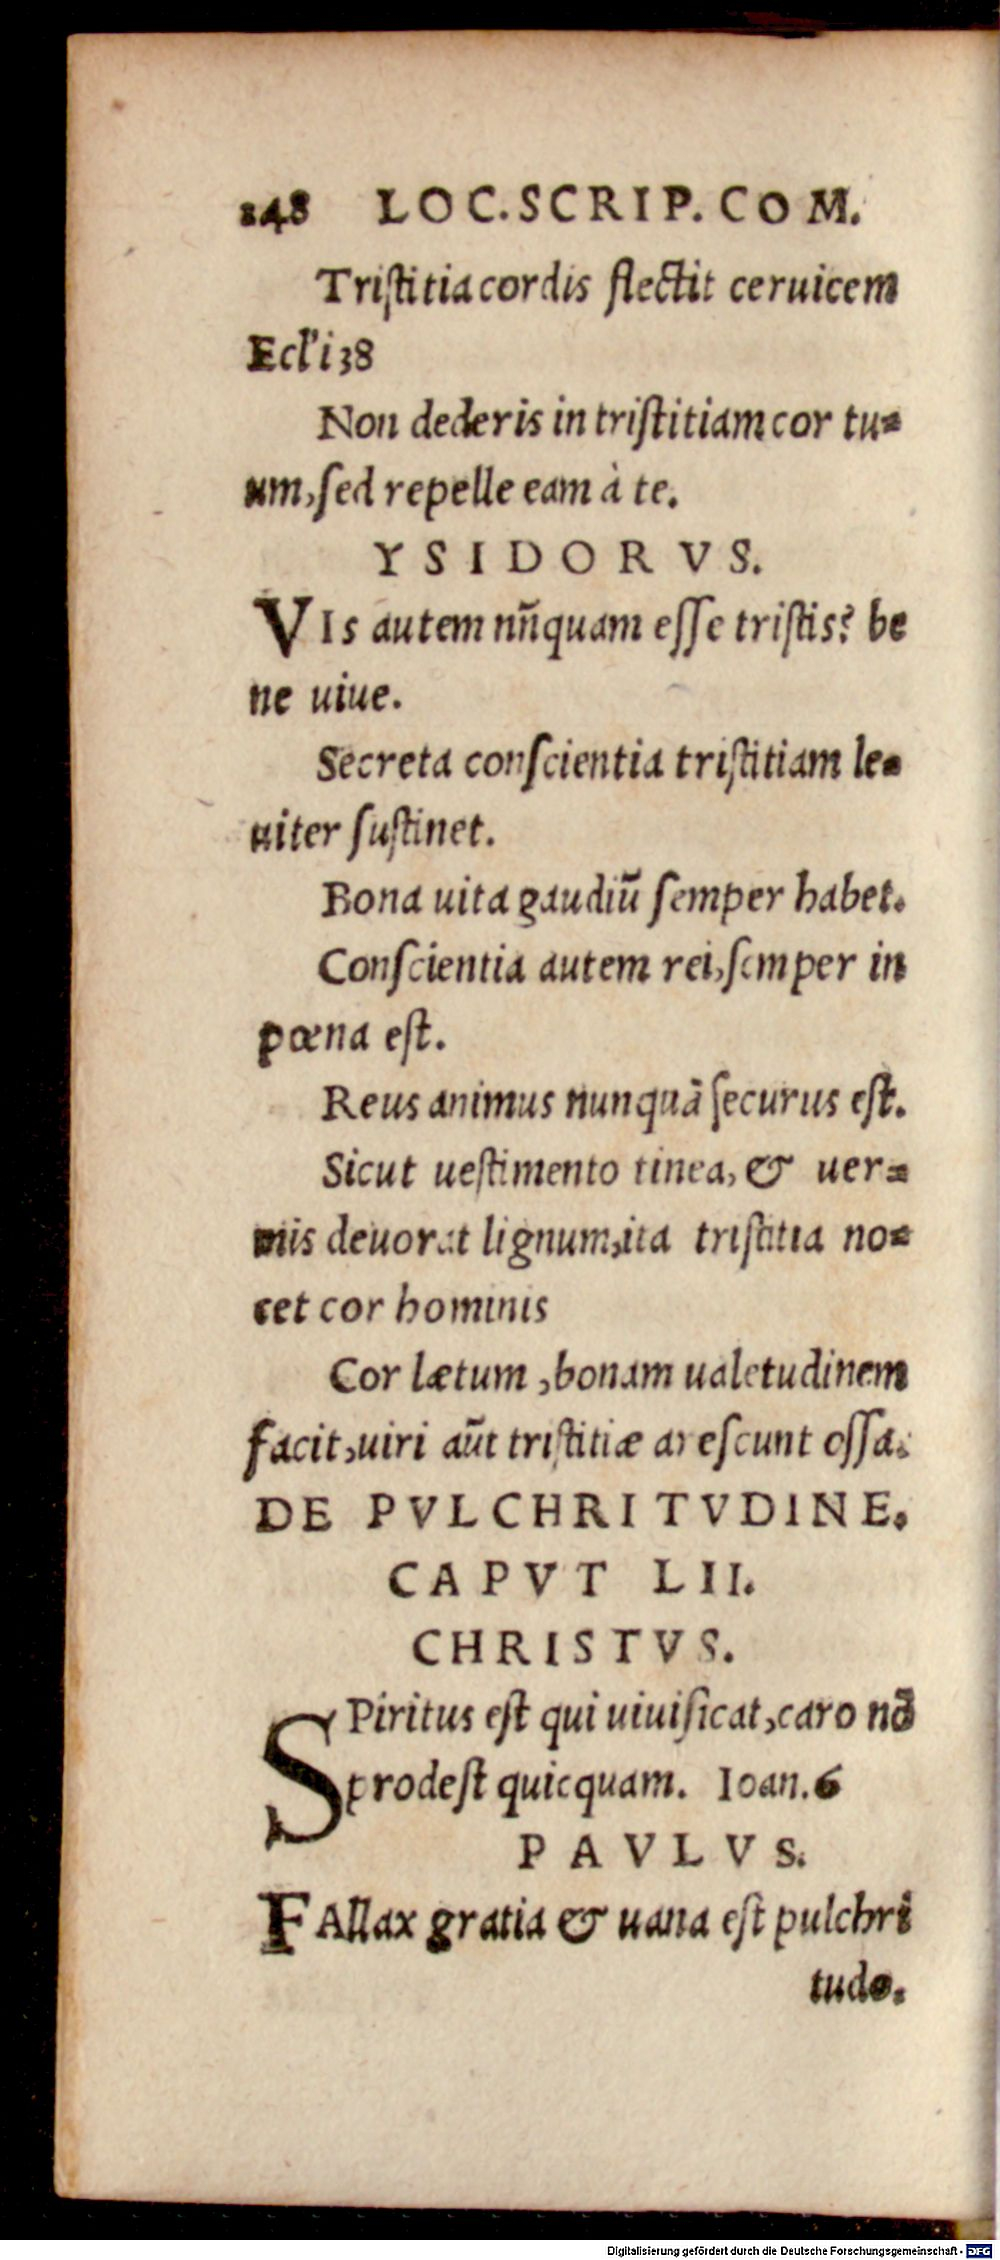 248 LOC. SCRIP. COM.
Tristitia cordis flectit ceruicem
Ecl'i 38
Non dederis in tristitiam cor tu=
um, sed repelle eam à te.
YSIDORVS.
VIs autem nũquam esse tristis? be
ne uiue.
Secreta conscientia tristitiam le=
uiter sustinet.
Bona uita gaudiũ semper habet.
Conscientia autem rei, semper in
pœna est.
Reus animus nunquã securus est.
Sicut uestimento tinea, & uer=
mis deuorat lignum, ita tristitia no=
cet cor hominis
Cor lætum, bonam ualetudinem
facit, uiri aũt tristitiæ arescunt ossa.
DE PVLCHRITVDINE.
CAPVT LII.
CHRISTVS.
SPiritus est qui uiuificat, caro nõ
prodest quicquam. Ioan. 6
PAVLVS.
FAllax gratia & uana est pulchri
tudo.
Digitalisierung gefördert durch die Deutsche Forschungsgemeinschaft - DFG